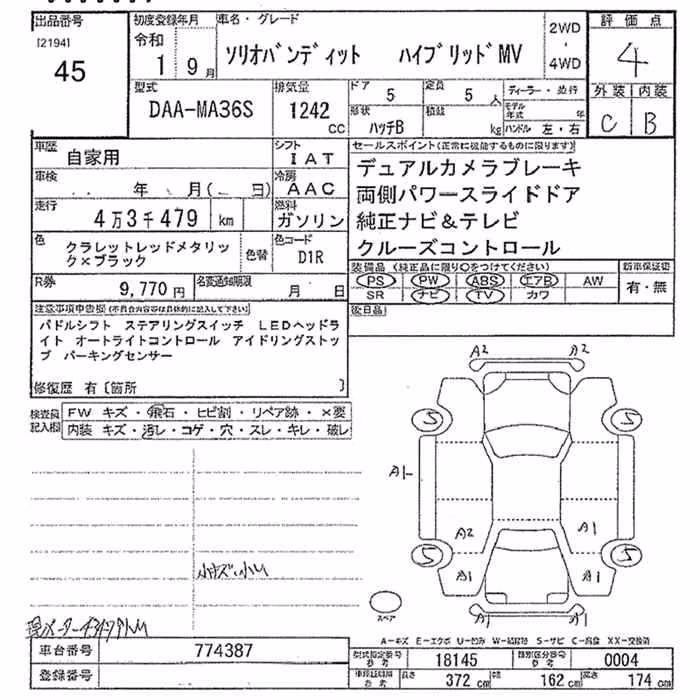 出品番号
[2194]
45
初度登録年月
令和
1 9月
車名・グレード
ソリオバンディット ハイブリッドMV
2WD
・
4WD
評価点
4
外装 内装
C B
型式
DAA-MA36S
排気量
1242
CC
ドア 5
定員 5 人
形状 ハッチB
積載 kg
ディーラー・並行
モデル年式 年
ハンドル 左・右
車歴 自家用
シフト IAT
車検 年 月( 日)
冷房 AAC
走行 4万3千479 km
燃料 ガソリン
色 クラレットレッドメタリッ
ク×ブラック
色替
色コード D1R
R券 9,770円
名変通知期限 月 日
セールスポイント(正常に機能するものに限ります)
デュアルカメラブレーキ
両側パワースライドドア
純正ナビ&テレビ
クルーズコントロール
装備品 (純正品に限り○をつけてください)
PS PW ABS エアB AW
SR ナビ TV カワ
新車保証書
有・無
後日品
注意事項申告欄(不具合内容等は具体的に記入して下さい)
パドルシフト ステアリングスイッチ LEDヘッドラ
イト オートライトコントロール アイドリングストッ
プ パーキングセンサー
修復歴 有[箇所 ]
検査員
記入欄
FW キズ・飛石・ヒビ割・リペア跡・×要
内装 キズ・汚レ・コゲ・穴・スレ・キレ・破レ
小キズ小凹
A2 A2
5 5
A1
A2 A1
5 5
A1 A1
A2 A1
スペア
A−キズ E−エクボ U−凹み W−補修跡 S−サビ C−腐食 XX−交換済
車台番号 774387
登録番号
型式指定番号
参考
18145
類別区分番号
参考
0004
車検証期限
参考
長さ 372 cm 幅 162 cm 高さ 174 cm